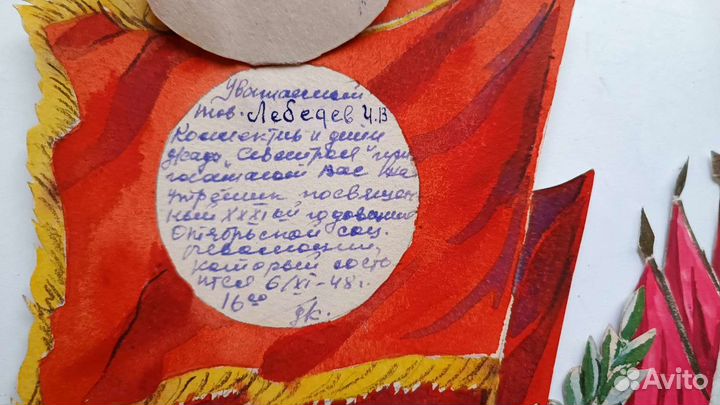 Уважаемый
тов. Лебедев И.В
Коллектив и дети
детсада "Севастроя" при
глашают Вас на
утренник, посвящен
ный XXXI ой годовщине
Октябрьской соц.
революции,
который состо
ится 6/XI-48г.
16⁰⁰
Avito